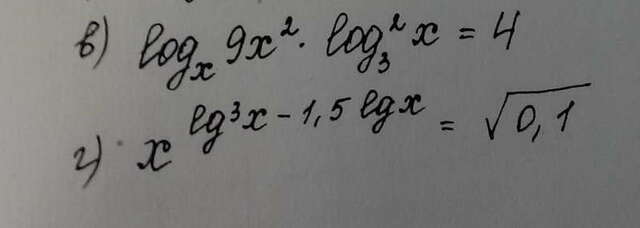 в) log_x 9x² · log₃² x = 4
г) x^(lg³x − 1,5 lgx) = √0,1